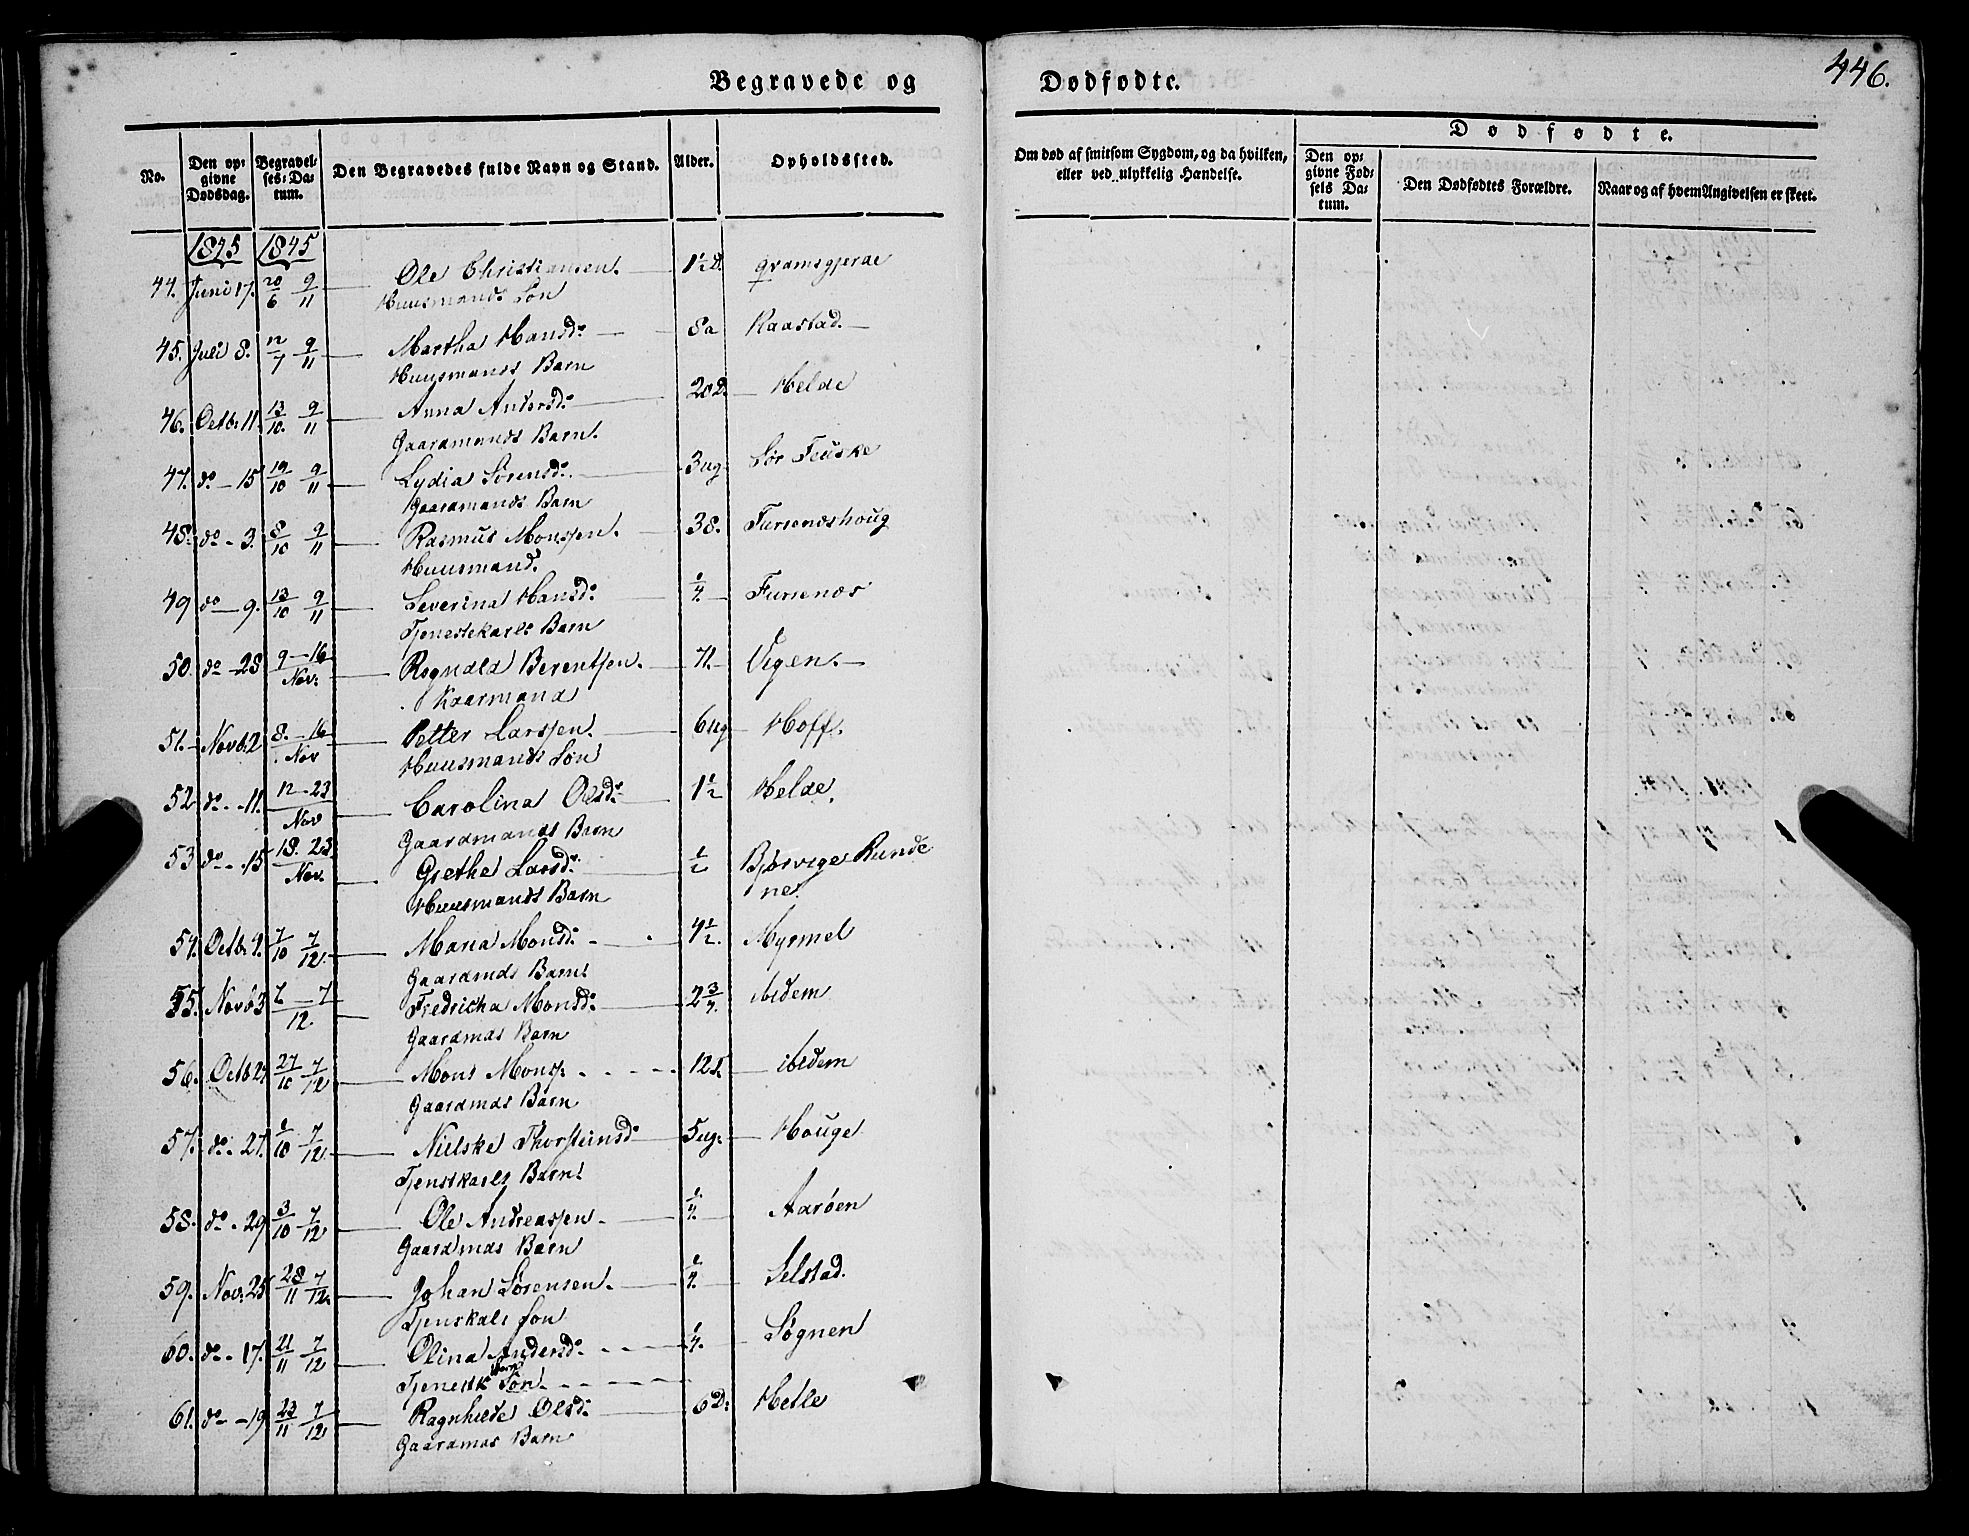 Begravede og Dødfødte.
446.
No.
Den opgivne Dødsdag.
Begravelses-Datum.
Den Begravedes fulde Navn og Stand.
Alder.
Opholdssted.
Om død af smitsom Sygdom, og da hvilken, eller ved ulykkelig Hændelse.
Dødfødte.
Den opgivne Fødsels Datum.
Den Dødfødtes Forældre.
Naar og af hvem Angivelsen er skeet.
1845 1845
44. Juni 17. 20/6 9/11 Ole Christiansen. 1½ d. Gramsgjerde
Huusmands Søn
45. Juli 8. 12/7 9/11 Martha Hansd: 8a Kaastad.
Huusmands Barn
46. Octb. 11. 13/10. 9/11 Anna Andersd: 20 D. Helde
Gaardmands Barn.
47. do 15 19/10 9/11 Lydia Sørensd: 3 ug Sør Feuske
Gaardmands Barn
48. do 3. 8/10 9/11 Rasmus Monssen. 38. Fursendshoug
Huusmand.
49 do 9. 13/10 9/11 Severina Hansd: ¼ Fursenæs
Tjenestekarls Barn
50. do 28 9-16 Nov: Rognald Berentsen. 71. Vegen.
Kaarmand
51. Novb. 2. 8.-16 Nov Petter Larssen. 6 ug Hoff.
Huusmands Søn
52 do 11. 12-23 Nov Carolina Olsd: 1½ Helde.
Gaardmands Barn
53 do 15 18. 23. Nov. Grethe Larsd: ½ Bjørvige Runde
nes
Huusmands Barn
54. Octb. 4. 7/10 7/12. Maria Monsd: 4½. Myrmel
Gaardmds Barn
55. Novb 3 7-7/12. Fredricha Monsd: 2¾. ibidem
Gaardmds Barn
56. Octb 2. 27/10 7/12 Mons Monss. 12 d. ibidem
Gaardmds Barn
57. do 27. 1/10 7/12. Nielske Thorsteinsd 5 ug. Houge
Tjenstkarls Barn
58. do 29 3/10 7/12. Ole Andreassen ¼. Aarøen
Gaardmds Barn
59. Nov. 25 28/11 7/12. Johan Sørensen. ¼. Selstad.
Tjenskals Søn
60. do 17. 21/11 7/12 Olina Andersd. ¼. Søgnen
Barn
Tjenestk Søn
61. do 19 23/11 7/12 Ragnhilde Olsd: 6 D. Hetle
Gaardmds Barn